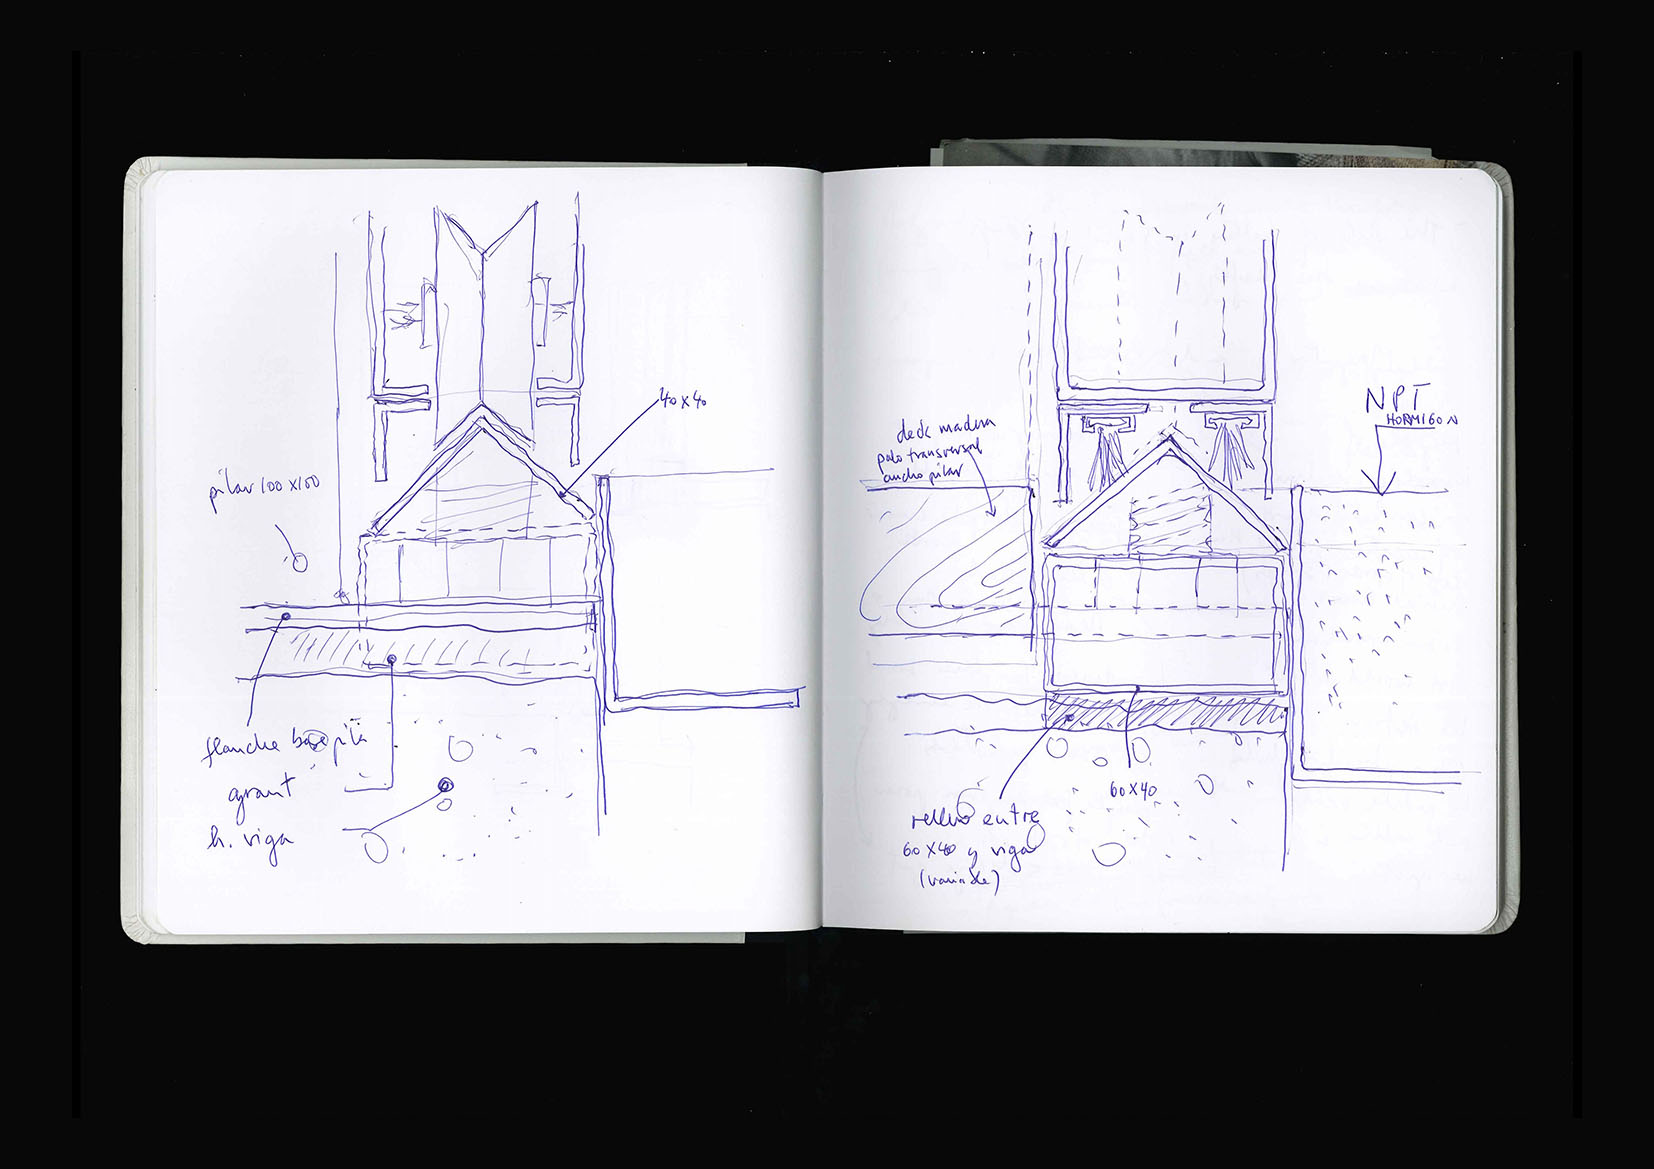 40x40
pilar 100x100
flanche base pila
grout
h. viga
deck madera
palo transversal
ancho pilar
NPT
HORMIGON
60x40
relleno entre
60x40 y viga
(variable)